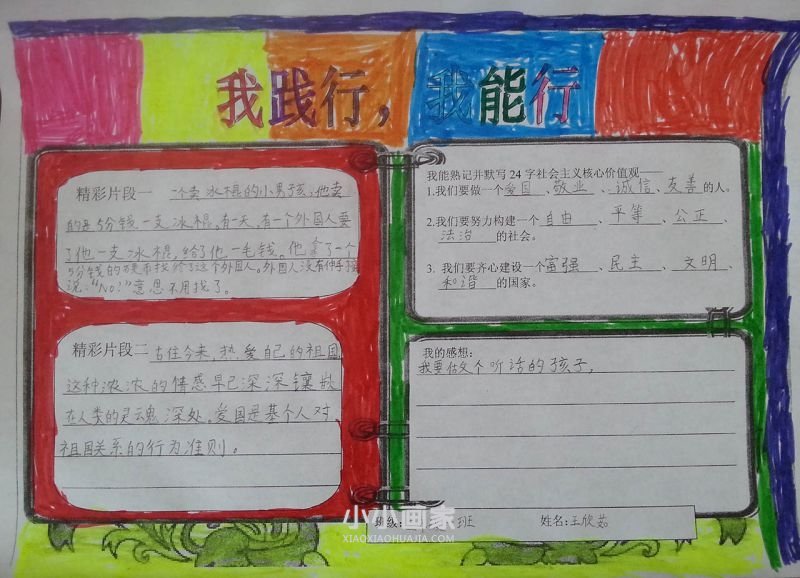 我践行，我能行
精彩片段一 一个卖冰棍的小男孩，他卖
的是5分钱一支冰棍。有一天，有一个外国人要
了他一支冰棍，给了他一毛钱。他拿了一个
5分钱的硬币找给了这个外国人。外国人没有伸手接
说："NO!"意思不用找了。
精彩片段二 古往今来，热爱自己的祖国
这种浓浓的情感早已深深镶嵌
在人类的灵魂深处。爱国是基个人对
祖国关系的行为准则。
我能熟记并默写24字社会主义核心价值观
1.我们要做一个爱国、敬业、诚信、友善的人。
2.我们要努力构建一个自由、平等、公正、
法治的社会。
3. 我们要齐心建设一个富强、民主、文明、
和谐的国家。
我的感想：
我要做个听话的孩子，
班级： 班 姓名：王欣茹
小小画家
XIAOXIAOHUAJIA.COM